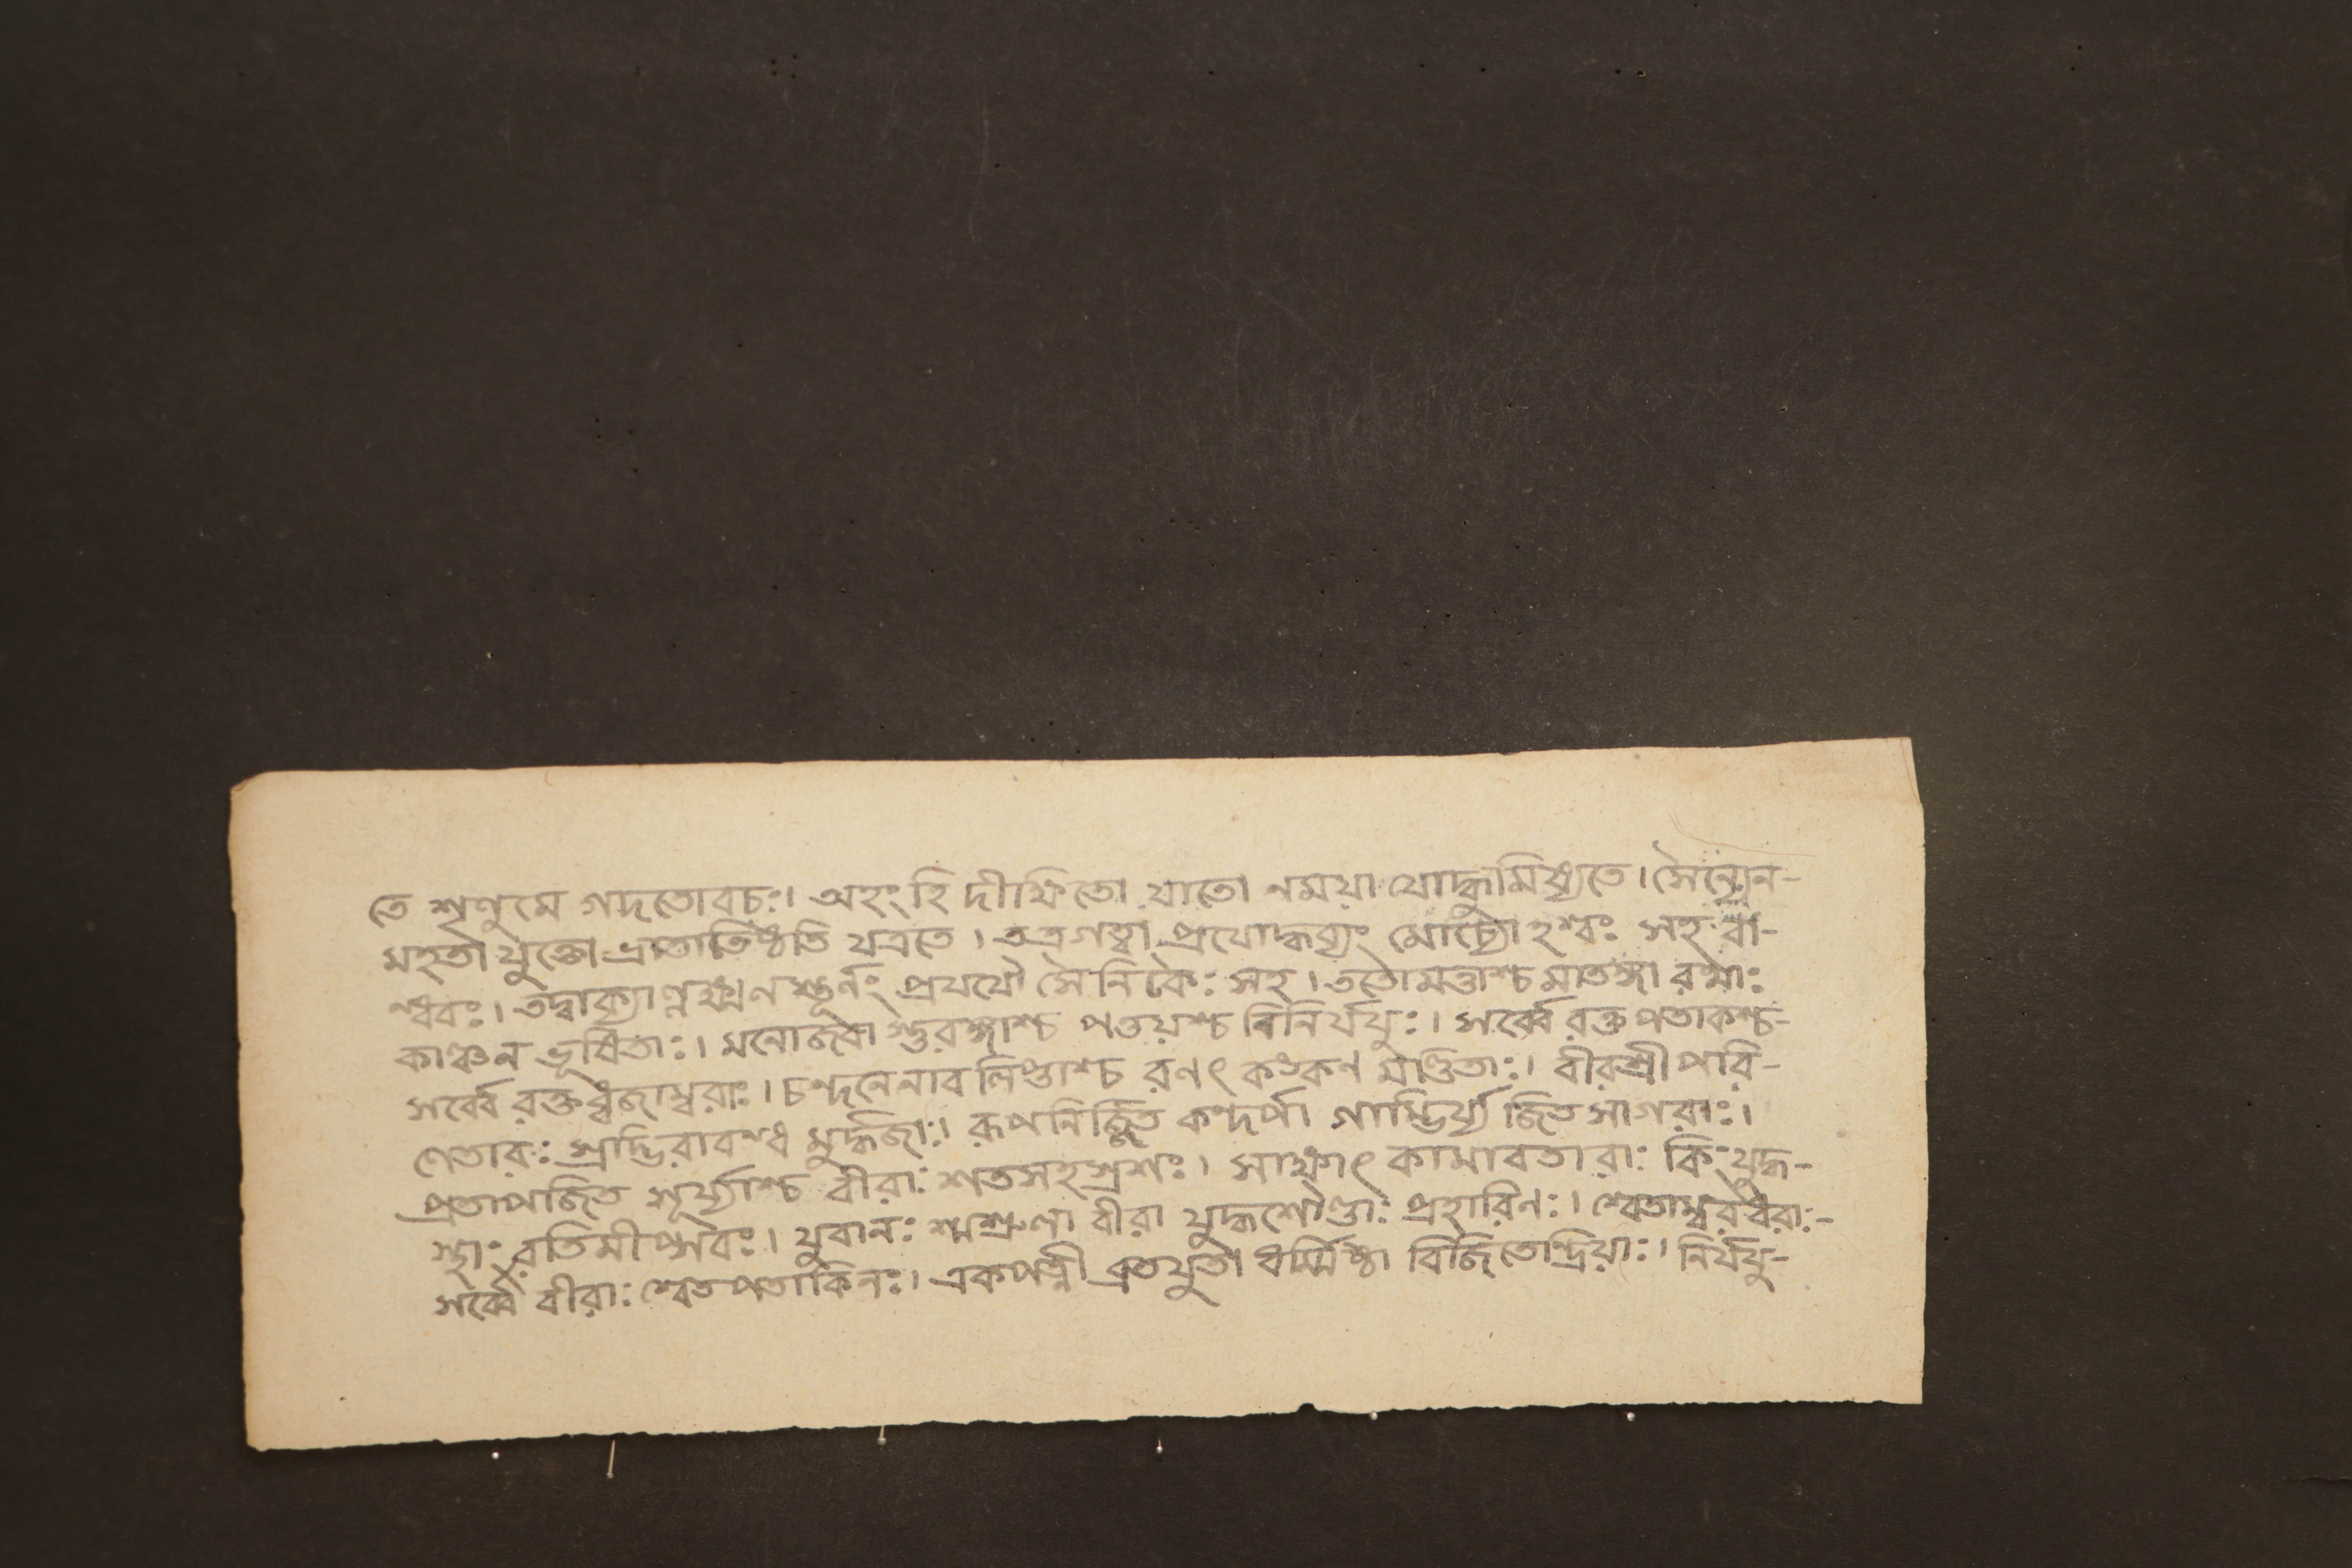 তে শৃণুমে গদতোবচঃ। অহং হি দীক্ষিতো যাতো নময়া যোদ্ধুমিষ্যতে। সৈন্যেন-
মহতা যুক্তো ভ্রাতাতিষ্ঠতি যত্রতে। তত্রগত্বা প্রযোদ্ধব্যং মোচ্যোহশ্বঃ সহ বা-
ন্ধবঃ। তদ্বাক্যাল্লক্ষ্মণস্তূর্ণং প্রযযৌ সৈনিকৈঃ সহ। ততোমত্তাশ্চ মাতঙ্গা রথাঃ
কাঞ্চন ভূষিতাঃ। মনোজবা স্তুরঙ্গাশ্চ পত্তয়শ্চ বিনির্যযুঃ। সর্ব্বে রক্ত পতাকশ্চ-
সর্ব্বে রক্তধ্বজাম্বরাঃ। চন্দনেনাব লিপ্তাশ্চ রণৎ কঙ্কণ মণ্ডিতাঃ। বীরশ্রী পরি-
ণেতারঃ স্রাদ্ভিরাবন্ধ মুর্দ্ধজাঃ। রূপনির্জ্জিত কংদর্পা গাম্ভির্য্য জিত সাগরাঃ।
প্রতাপজিত সূর্য্যাশ্চ বীরাঃ শতসহস্রশঃ। সাক্ষাৎ কামাবতারাঃ কিং যুদ্ধ-
স্থাঃ রতিমীপ্সবঃ। যুবানঃ শ্মশ্রুলা বীরা যুদ্ধশৌণ্ডাঃ প্রহারিণঃ। শ্বেতাম্বরধরাঃ-
সর্ব্বে বীরাঃ শ্বেতপতাকিনঃ। একপত্নী ব্রতযুতা ধর্ম্মিষ্ঠা বিজিতেন্দ্রিয়াঃ। নির্যযু-